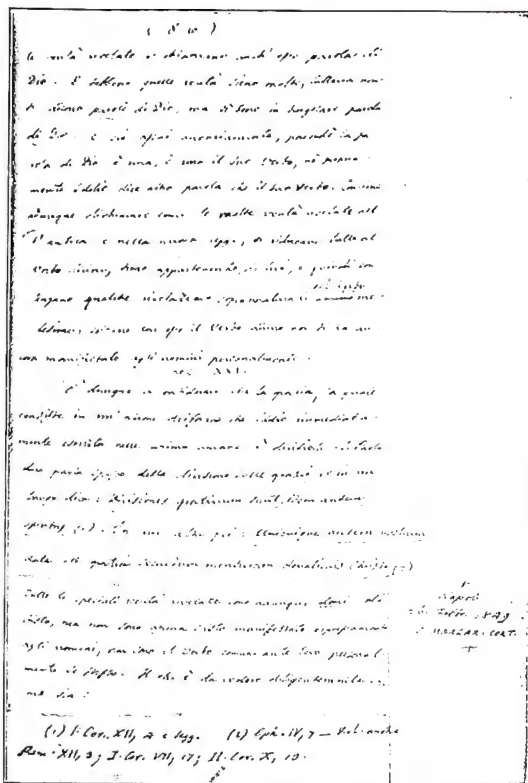 le verità rivelate si chiamano anch' esse parola di
Dio. E sebbene quelle verità siano molte, tuttavia non
si dicono parole di Dio, ma si dicono in singolare parola
di Dio. E ciò perché la pa
rola di Dio è una, è uno il suo Verbo, nè
mente Iddio dice altra parola che il suo Verbo. Conviene
adunque dichiarare come le molte verità rivelate nel
l'antica e nella nuova legge, si riducano tutte al
Verbo divino, sieno appartenenze di lui, e quindi con
tengano qualche rivelazione
con esso il Verbo divino non si sia an
cora manifestato agli uomini personalmente.
XXI.
È dunque a considerare che la grazia, la quale
consiste in un' azione deiforme che Iddio immediata
mente esercita nelle anime umane è divisibile. S. Paolo
parla spesso della divisione delle grazie, e in un
luogo dice: Divisiones gratiarum sunt, idem autem
spiritus (1). In un altro poi: Unicuique autem nostrum
data est gratia secundum mensuram donationis Christi (2)
Tutte le speciali verità rivelate sono adunque doni di
Cristo, ma non sono ancora Cristo manifestato
agli uomini, non sono il Verbo comunicante loro personal
mente se stesso. Il che è da vedere diligentemente
come sia:
(1) I. Cor. XII, 4 e segg. (2) Eph. IV, 7 — Ved. anche
Rom. XII, 3; I. Cor. VII, 17; II. Cor. X, 13.
Napoli
1849